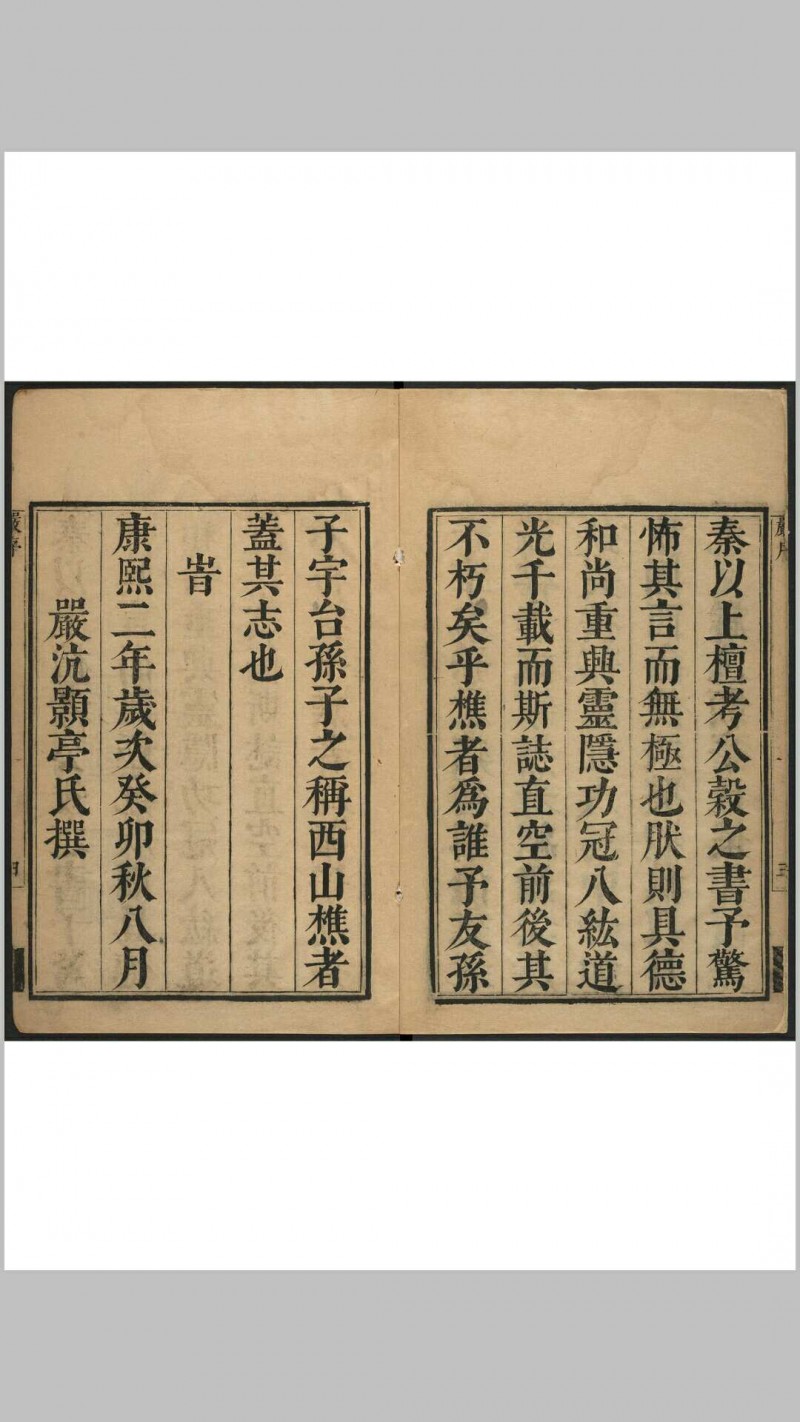 秦以上檀考公穀之書予驚
怖其言而無極也肰則具德
和尚重興靈隱功冠八紘道
光千載而斯誌直空前後其
不朽矣乎樵者爲誰予友孫
子宇台孫子之稱西山樵者
蓋其志也
旹
康熙二年歲次癸卯秋八月
嚴沆顥亭氏撰